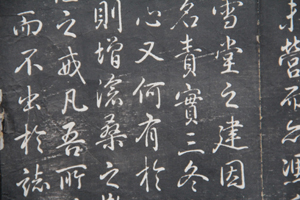 營而
雪堂之建因
名責實三冬
心又何有於
則增滄桑之
之戒凡吾所
而不出於誌